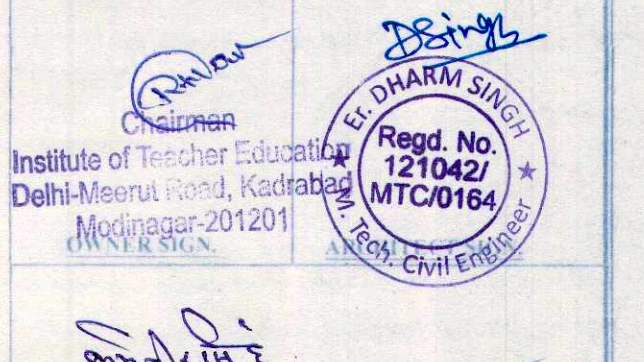 DSingh
Chairman
Institute of Teacher Education
Delhi-Meerut Road, Kadrabad
Modinagar-201201
OWNER SIGN.
Er. DHARM SINGH
Regd. No.
121042/
MTC/0164
M. Tech. Civil Engineer
ARCHITECT SIGN.